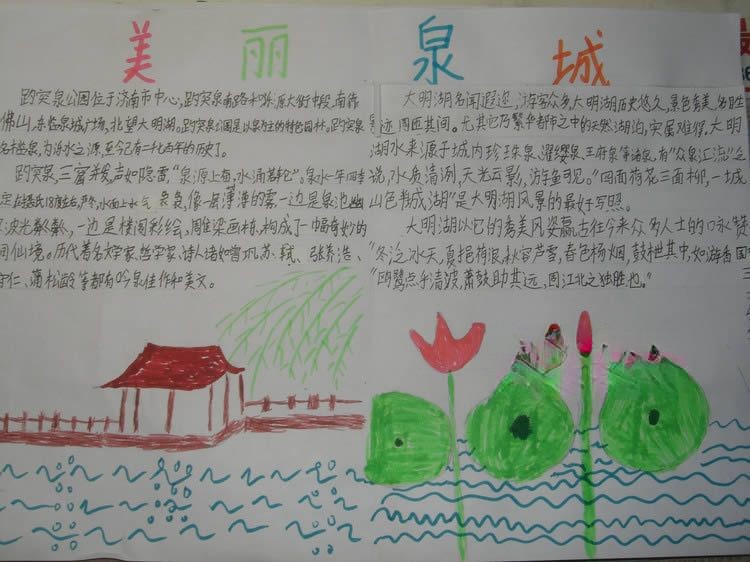 美丽泉城
趵突泉公园位于济南市中心,趵突泉南路和泺源大街中段,南靠
佛山,东临泉城广场,北望大明湖。趵突泉公园是以泉为主的特色园林。趵突泉
名胜泉,为泺水之源,至今已有二千七百年的历史了。
趵突泉,三窟并发,声如隐雷,“泉源上奋,水涌若轮”。泉水一年四季
定在摄氏18度左右,严冬,水面上水气袅袅,像一层薄薄的雾,一边是泉池幽
波光粼粼,一边是楼阁彩绘,雕梁画栋,构成了一幅奇妙的
间仙境。历代著名文学家、哲学家、诗人诸如曾巩、苏轼、张养浩、
守仁、蒲松龄等都有吟泉佳作和美文。
大明湖名闻遐迩,游客众多,大明湖历史悠久,景色秀美,名胜
迹周匝其间。尤其它乃繁华都市之中的天然湖泊,实属难得,大明
湖水来源于城内珍珠泉、濯缨泉、王府泉等诸泉,有“众泉汇流”之
说,水质清冽,天光云影,游鱼可见。“四面荷花三面柳,一城
山色半城湖”是大明湖风景的最好写照。
大明湖以它的秀美风姿赢古往今来众多人士的咏赞
“冬泛冰天,夏挹荷浪,秋容芦雪,春色杨烟,鼓枻其中,如游香国
“鸥鹭点乎清波,箫鼓助其远,固江北之独胜也。”